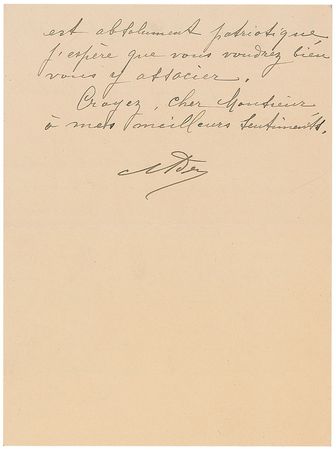 est absolument patriotique
j'espère que vous voudrez bien
vous y associer.
Croyez, cher Monsieur
à mes meilleurs sentiments.